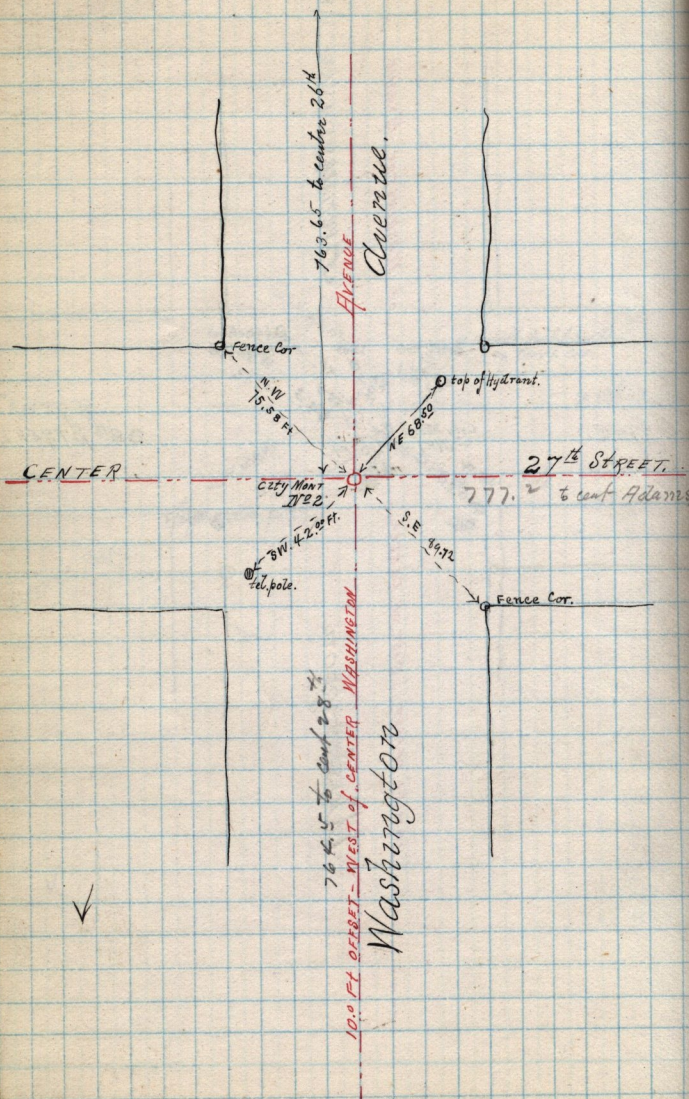 763.65 to center 26th
AVENUE
Avenue.
Fence Cor
top of Hydrant.
N.W
75.58 Ft
NE 68.50
CENTER
27th STREET.
777.2 to cent Adams
City Mont
No 2
SW. 42.00 Ft.
S.E 89.72
tel. pole.
Fence Cor.
764.5 to cent 28th
10.0 Ft OFFSET - WEST of CENTER WASHINGTON
Washington